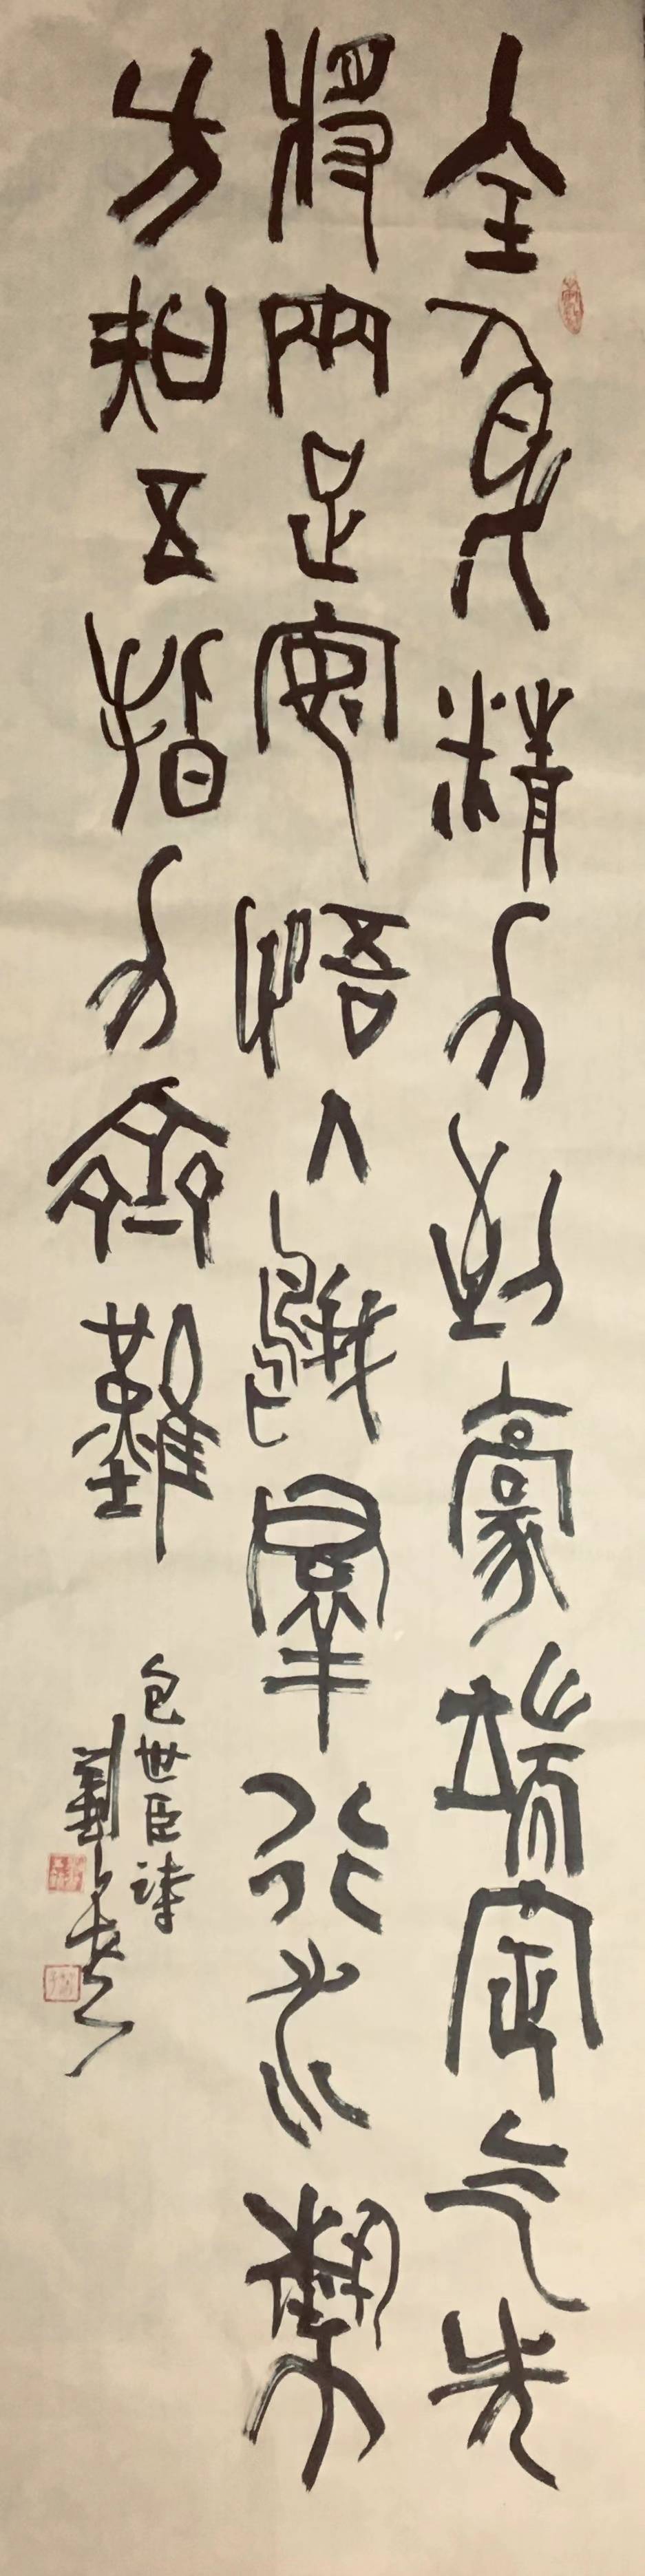 全身精力到豪端定气先
將兩足安悟入鵝羣行水埶
方知五指力齊難
包世臣詩
劉